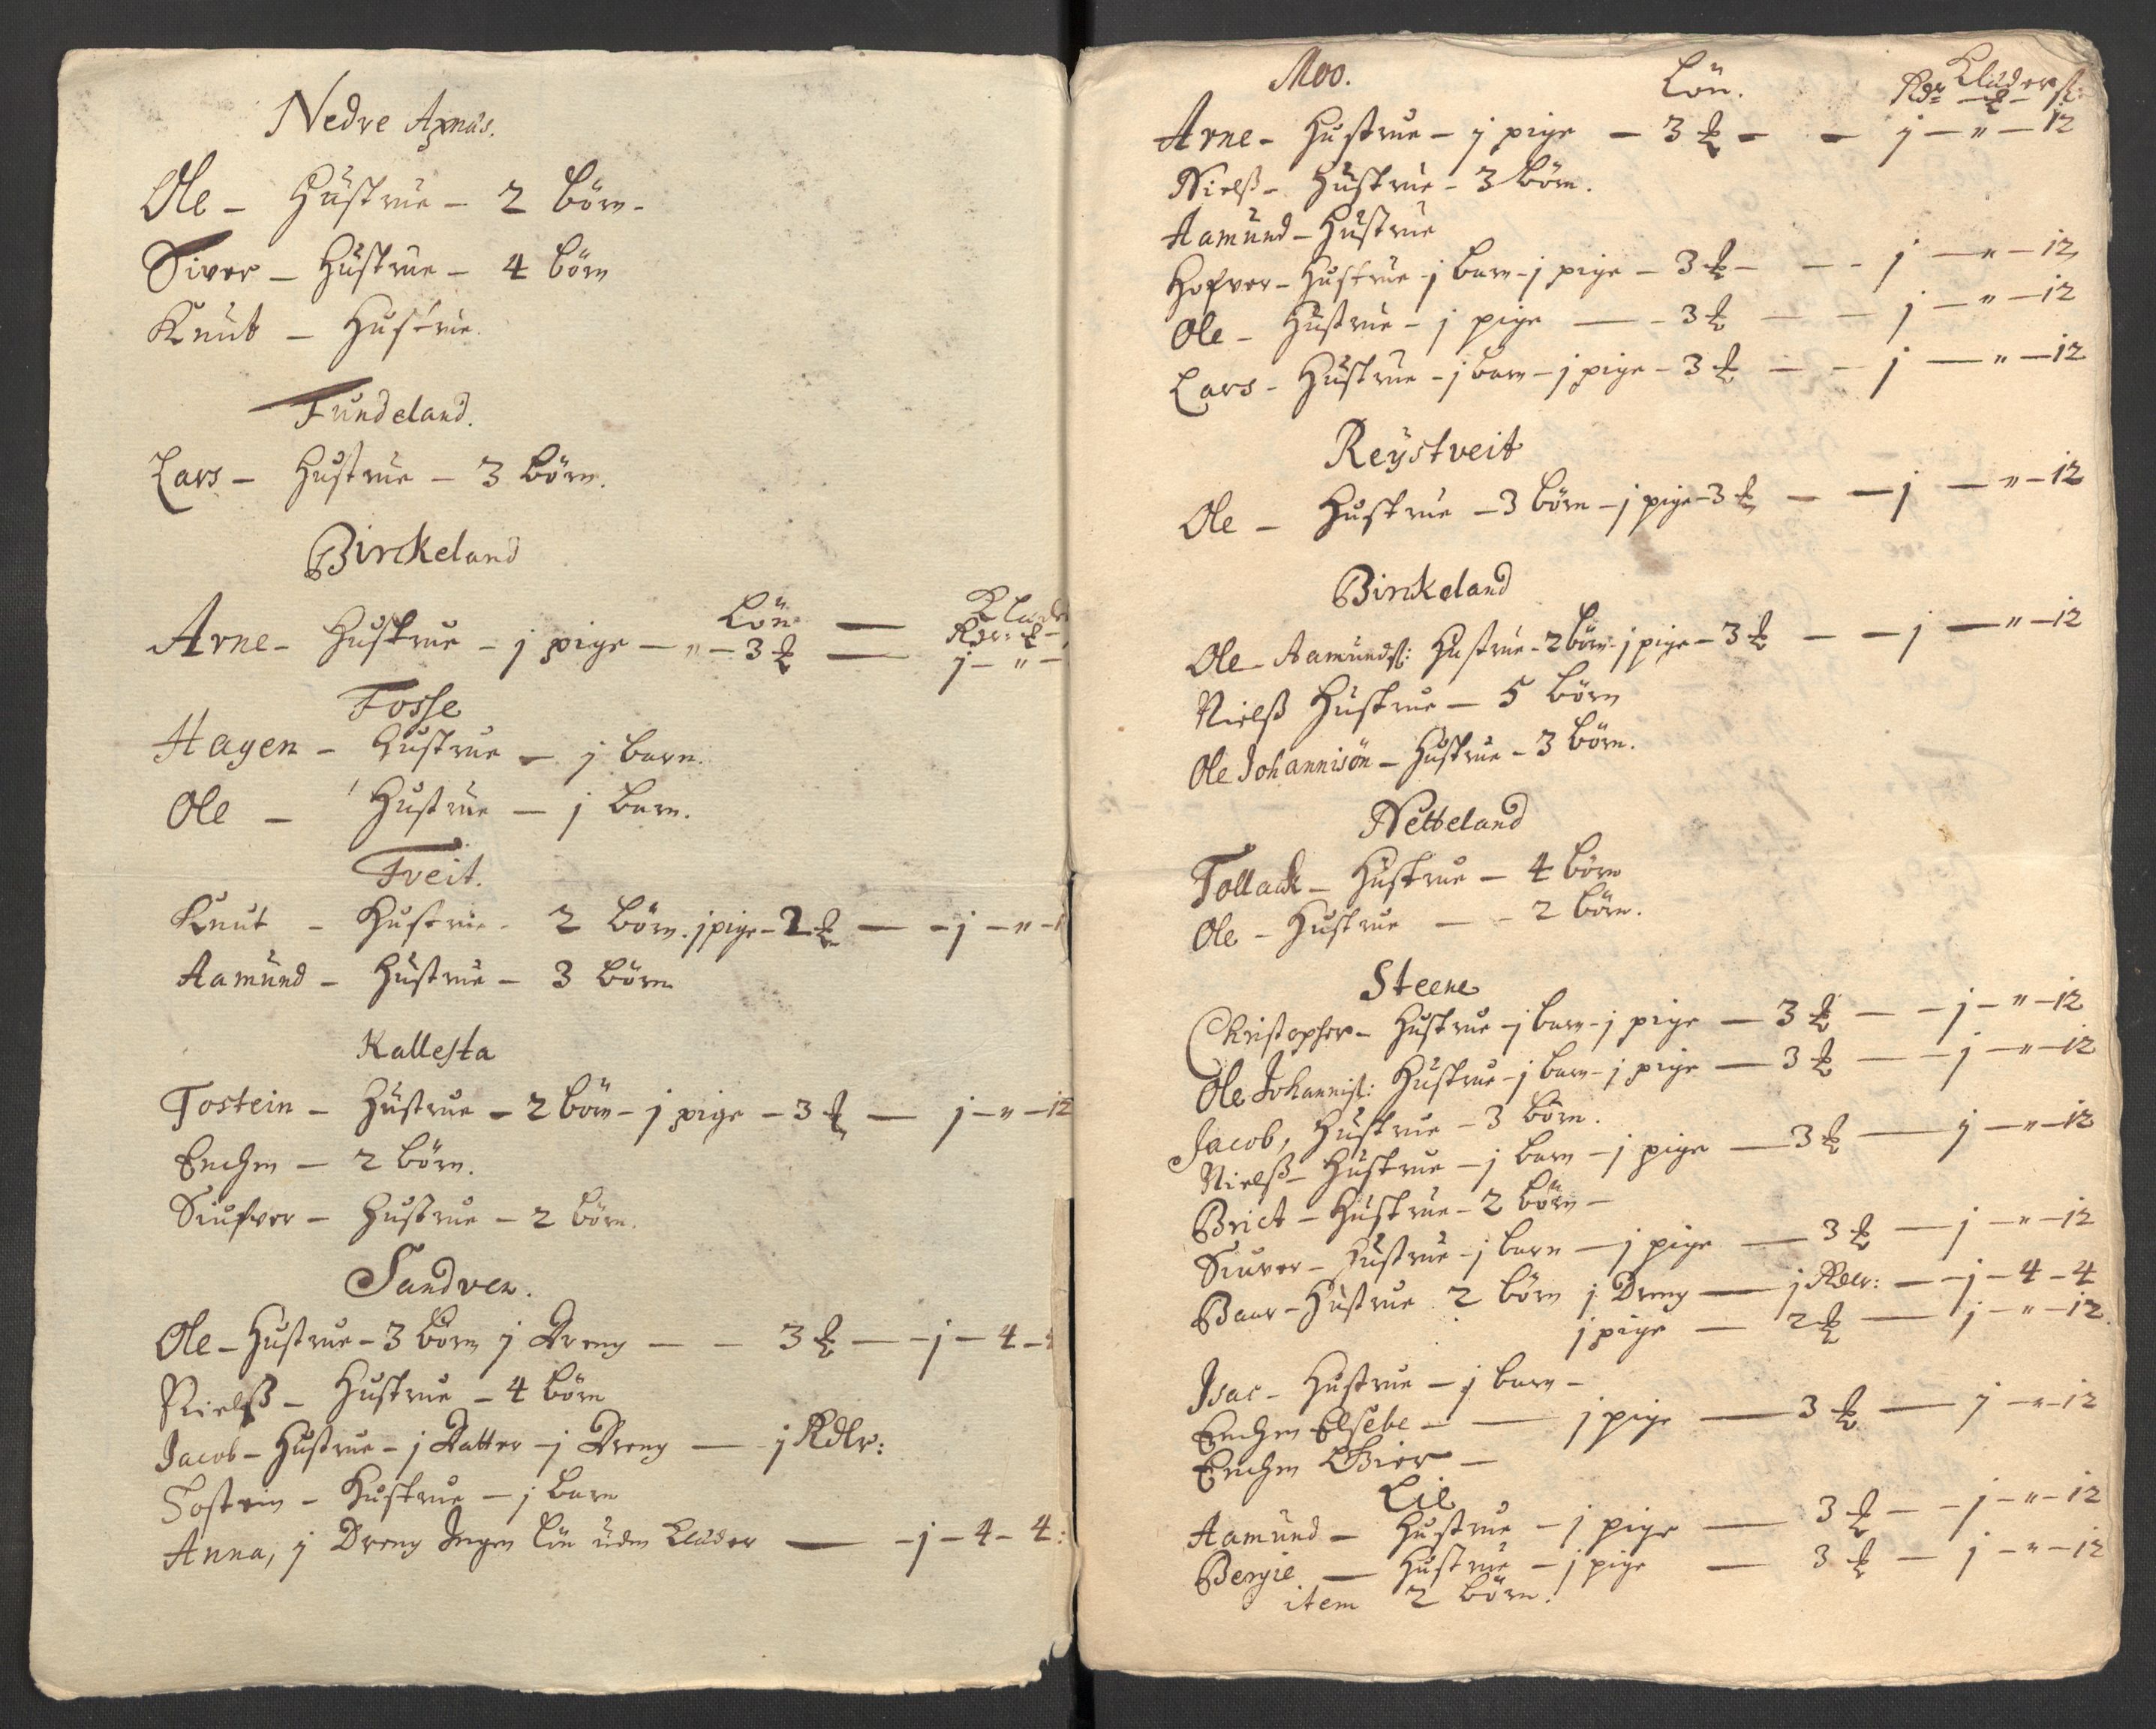 Nedre Axnæs.
Ole – Hustrue – 2 börn –
Siver – Hustrue – 4 börn
Knut – Hustrue.
Tundeland.
Lars – Hustrue – 3 börn.
Birckeland
Lön – Klæder
Rdr: ℔ –
Arne – Hustrue – j pige – " – 3 ℔ – j – " –
Fosse
Hagen – Hustrue – j barn.
Ole – Hustrue – j barn.
Tveit.
Knut – Hustrue – 2 börn. j pige – 2 ℔ – – j – " – 1
Aamund – Hustrue – 3 börn
Kallesta
Tostein – Hustrue – 2 börn – j pige – 3 ℔ – j – " – 12
Enchen – 2 börn.
Siufver – Hustrue – 2 börn.
Sandven.
Ole – Hustrue – 3 börn j Dreng – – 3 ℔ – – j – 4 –
Nielß – Hustrue – 4 börn
Jacob – Hustrue – j Datter – j Dreng – j Rdlr:
Tostein – Hustrue – j barn
Anna, j Dreng Ingen lön uden Klæder – – j – 4 – 4:
Moo. Lön. Klæder
Rdr – ℔ – ſl:
Arne – Hustrue – j pige – 3 ℔ – – j – " – 12
Nielß – Hustrue – 3 börn.
Aamund – Hustrue
Hofver – Hustrue – j barn – j pige – 3 ℔ – – – j – " – 12
Ole – Hustrue – j pige – – 3 ℔ – – j – " – 12
Lars – Hustrue – j barn – j pige – 3 ℔ – – j – " – 12
Reÿstveit
Ole – Hustrue – 3 börn – j pige – 3 ℔ – – j – " – 12
Birckeland
Ole Aamundſ: Hustrue – 2 börn – j pige – 3 ℔ – – j – " – 12
Nielß Hustrue – 5 börn
Ole Johannisön – Hustrue – 3 börn.
Netteland
Tollack – Hustrue – 4 börn
Ole – Hustrue – – 2 börn.
Steene
Christopher – Hustrue – j barn – j pige – 3 ℔ – – j – " – 12
Ole Johanniſ: Hustrue – j barn – j pige – 3 ℔ – – j – " – 12
Jacob, Hustrue – 3 börn.
Nielß – Hustrue – j barn – j pige – 3 ℔ – j – " – 12
Brict – Hustrue – 2 börn –
Siuver – Hustrue – j barn – j pige – 3 ℔ – j – " – 12
Baar – Hustrue 2 börn j Dreng – j Rdlr: – – j – 4 – 4
j pige – 2 ℔ – j – " – 12.
Isac – Hustrue – j barn –
Enchen Elsebe – – j pige – 3 ℔ – j – " – 12
Enchen Gier –
Lie
Aamund – Hustrue – j pige – 3 ℔ – – j – " – 12
Bergie – Hustrue – j pige – 3 ℔ – j – " – 12
item 2 börn.